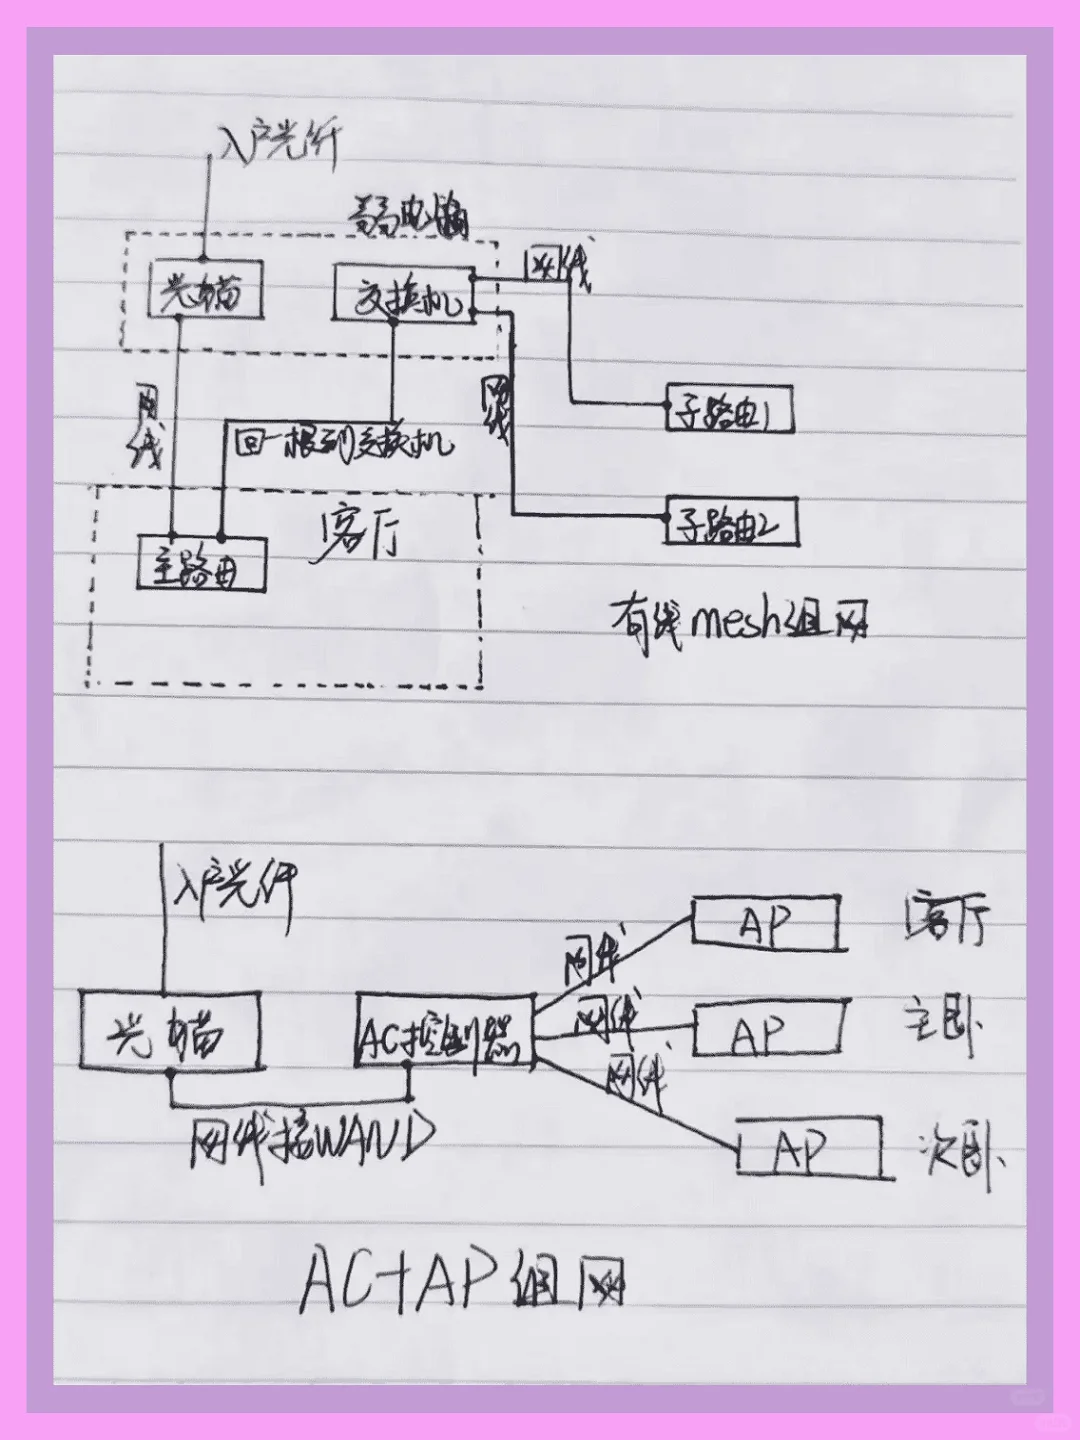 入户光纤
弱电箱
光猫
交换机
网线
网线
网线
子路由1
回一根到交换机
子路由2
客厅
主路由
有线mesh组网
入户光纤
AP
客厅
网线
光猫
AC控制器
网线
AP
主卧
网线
网线接WAND
AP
次卧
AC+AP组网